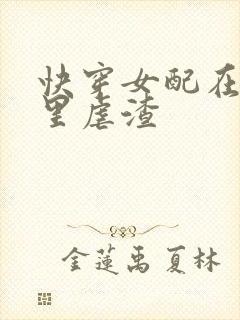 快穿女配在
里虐渣
金莲禹夏林